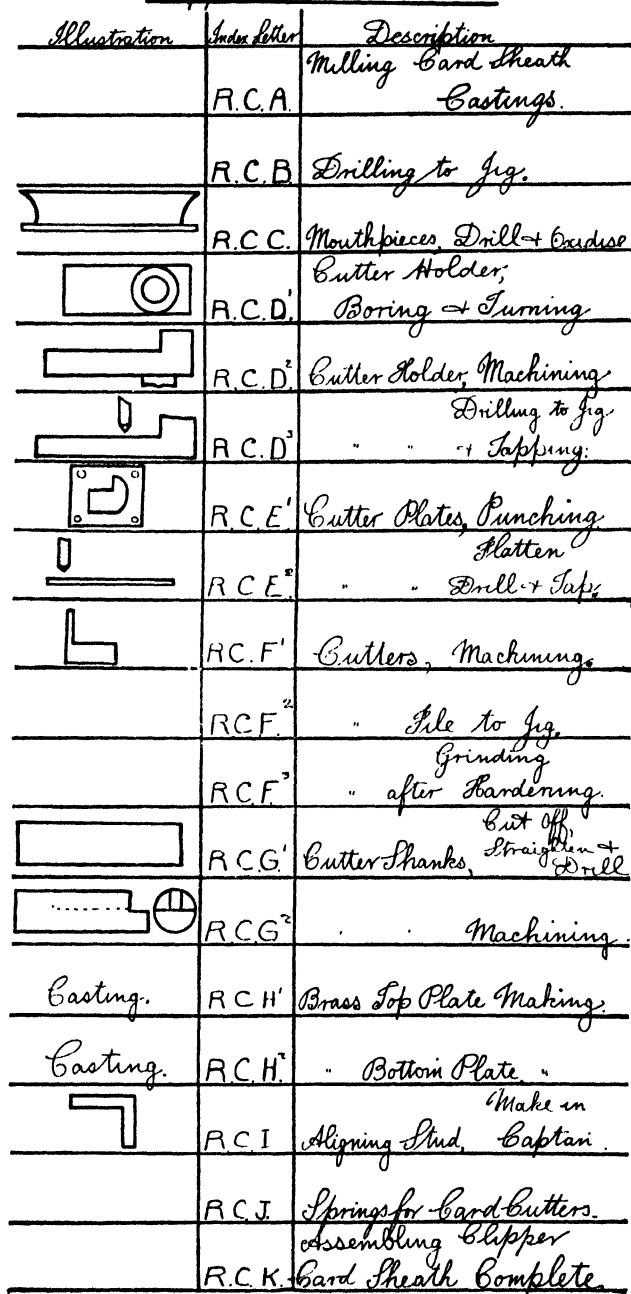 Illustration Index Letter Description
R.C.A. Milling Card Sheath
Castings.
R.C.B. Drilling to Jig.
R.C C. Mouthpieces, Drill & Oxidise
R.C.D.¹ Cutter Holder,
Boring & Turning
R.C.D.² Cutter Holder, Machining
R.C.D³ Drilling to Jig
" " & Tapping.
R.C.E.¹ Cutter Plates, Punching
R C E.² Flatten
" " Drill & Tap.
R C. F¹ Cutters, Machining.
R C F.² " File to Jig.
R C F.³ Grinding
" after Hardening.
R.C.G¹ Cutter Shanks, Cut Off,
Straighten &
Drill
R.C.G² " " Machining.
Casting. R C H¹ Brass Top Plate Making.
Casting. R.C.H.² " Bottom Plate "
R.C I Aligning Stud, Make in
Captan.
R C J. Springs for Card Cutters.
R.C. K. Assembling Clipper
Card Sheath Complete.